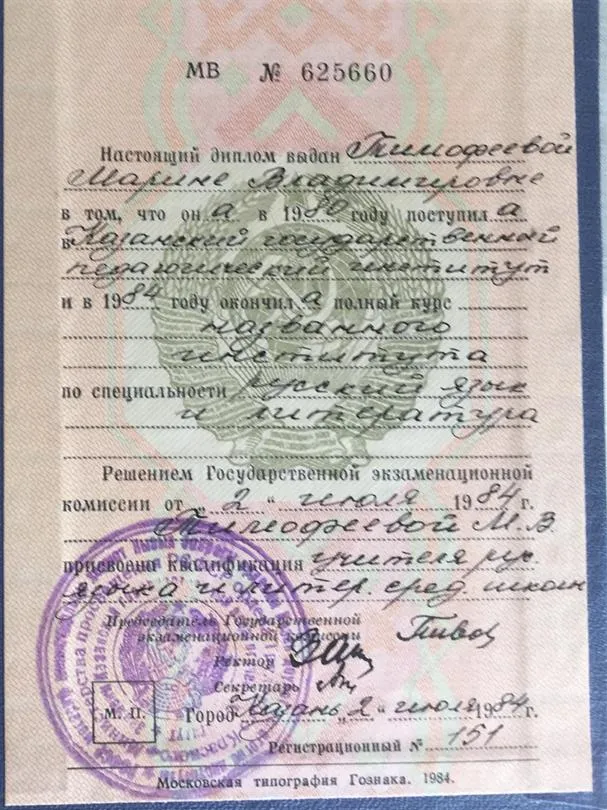 МВ № 625660
Настоящий диплом выдан Тимофеевой
Марине Владимировне
в том, что он а в 1980 году поступил а
в Казанский государственный
педагогический институт
и в 1984 году окончил а полный курс
названного
института
по специальности русский язык
и литература
Решением Государственной экзаменационной
комиссии от „2“ июля 1984 г.
Тимофеевой М. В.
присвоена квалификация учителя рус.
языка и литер. сред. школы
Председатель Государственной
экзаменационной комиссии
Ректор
Секретарь
М. П.
Город Казань „2“ июля 1984 г.
Регистрационный № 151
Московская типография Гознака. 1984.